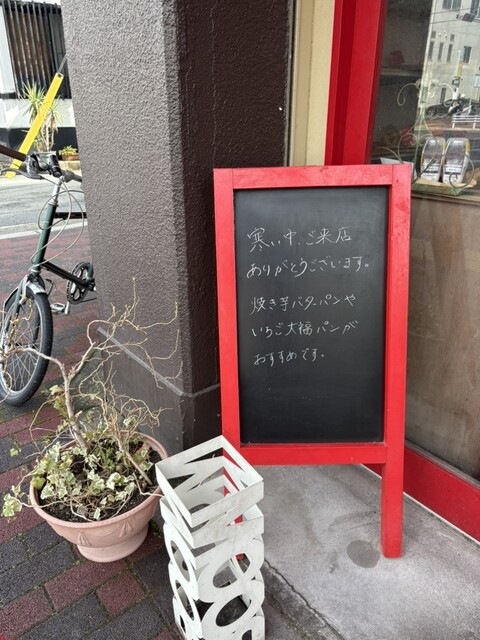 寒い中、ご来店
ありがとうございます。
焼き芋バターパンや
いちご大福パンが
おすすめです。